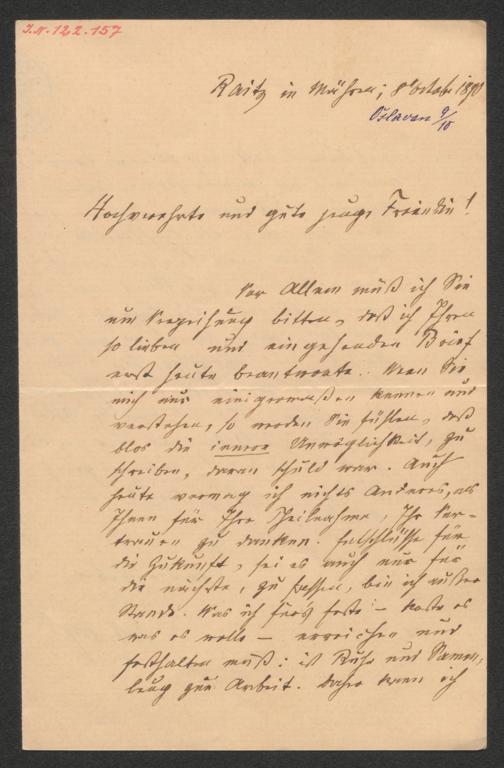 J.N. 122.157
Raitz in Mähren; 8t October 1890
Oslavan 9/10
Hochverehrte und gute junge Freundin!
Vor Allem muß ich Sie
um Verzeihung bitten, daß ich Ihren
so lieben und eingehenden Brief
erst heute beantworte. Wenn Sie
mich nur einigermaßen kennen und
verstehen, so werden Sie fühlen, daß
blos die innere Unmöglichkeit, zu
schreiben, daran schuld war. Auch
heute vermag ich nichts Anderes, als
Ihnen für Ihre Theilnahme, Ihr Ver-
trauen zu danken. Entschlüsse für
die Zukunft, sei es auch nur für
die nächste, zu fassen, bin ich außer
Stande. Was ich fürs Erste – koste es
was es wolle – erreichen und
festhalten muß: ist Ruhe und Samm-
lung zur Arbeit. Daher kann ich